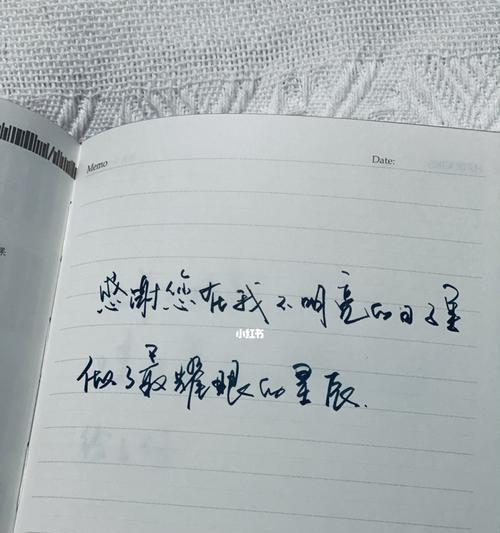 Memo
Date:
感谢您在我不明亮的日子里
小红书
做了最耀眼的星辰.